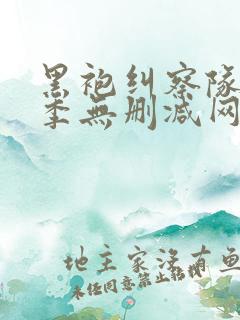 黑袍纠察队
季無删减网
地主家没有鱼
未经同意禁止转载